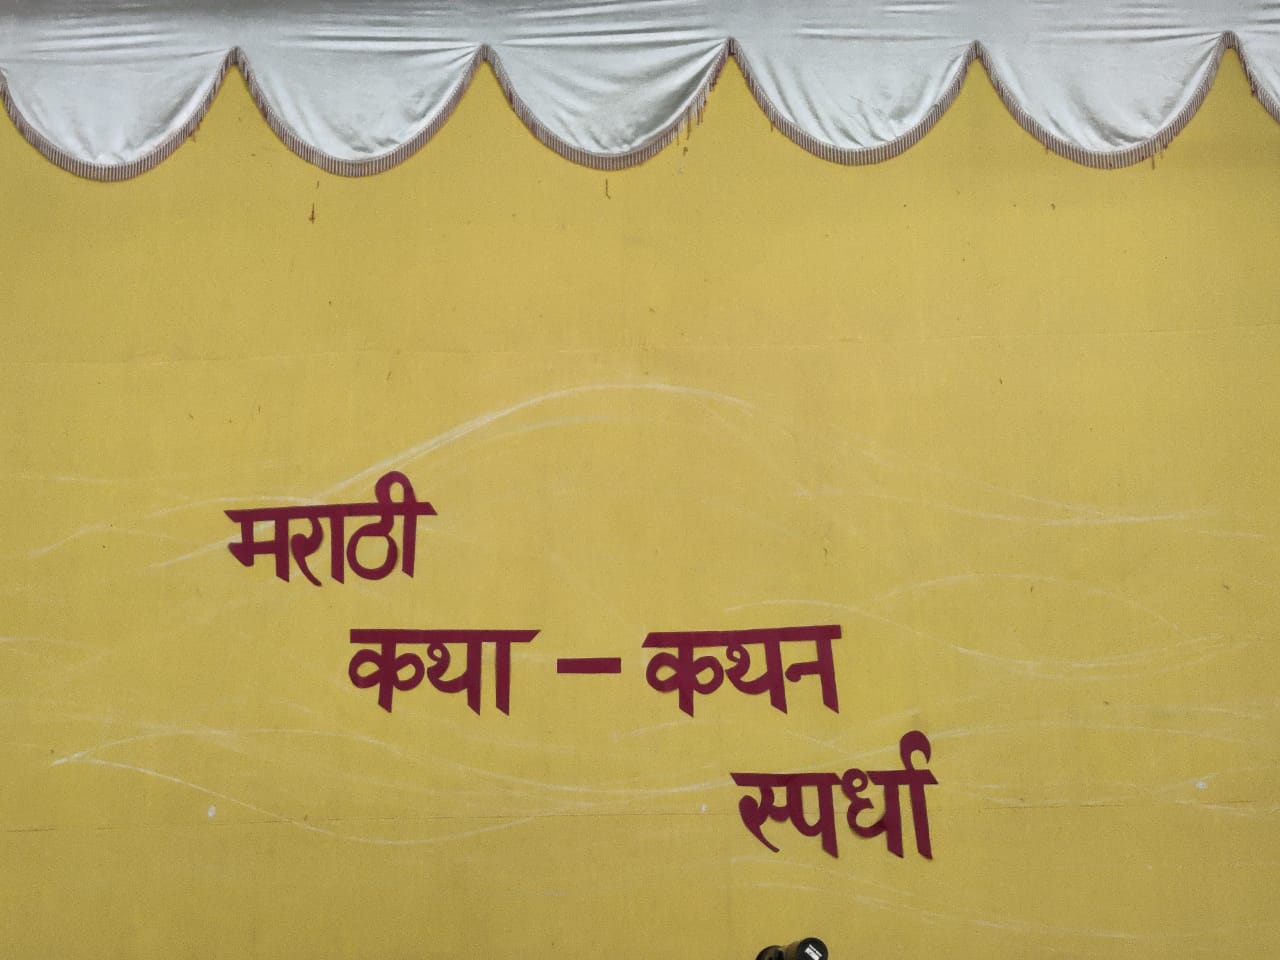 मराठी
कथा – कथन
स्पर्धा